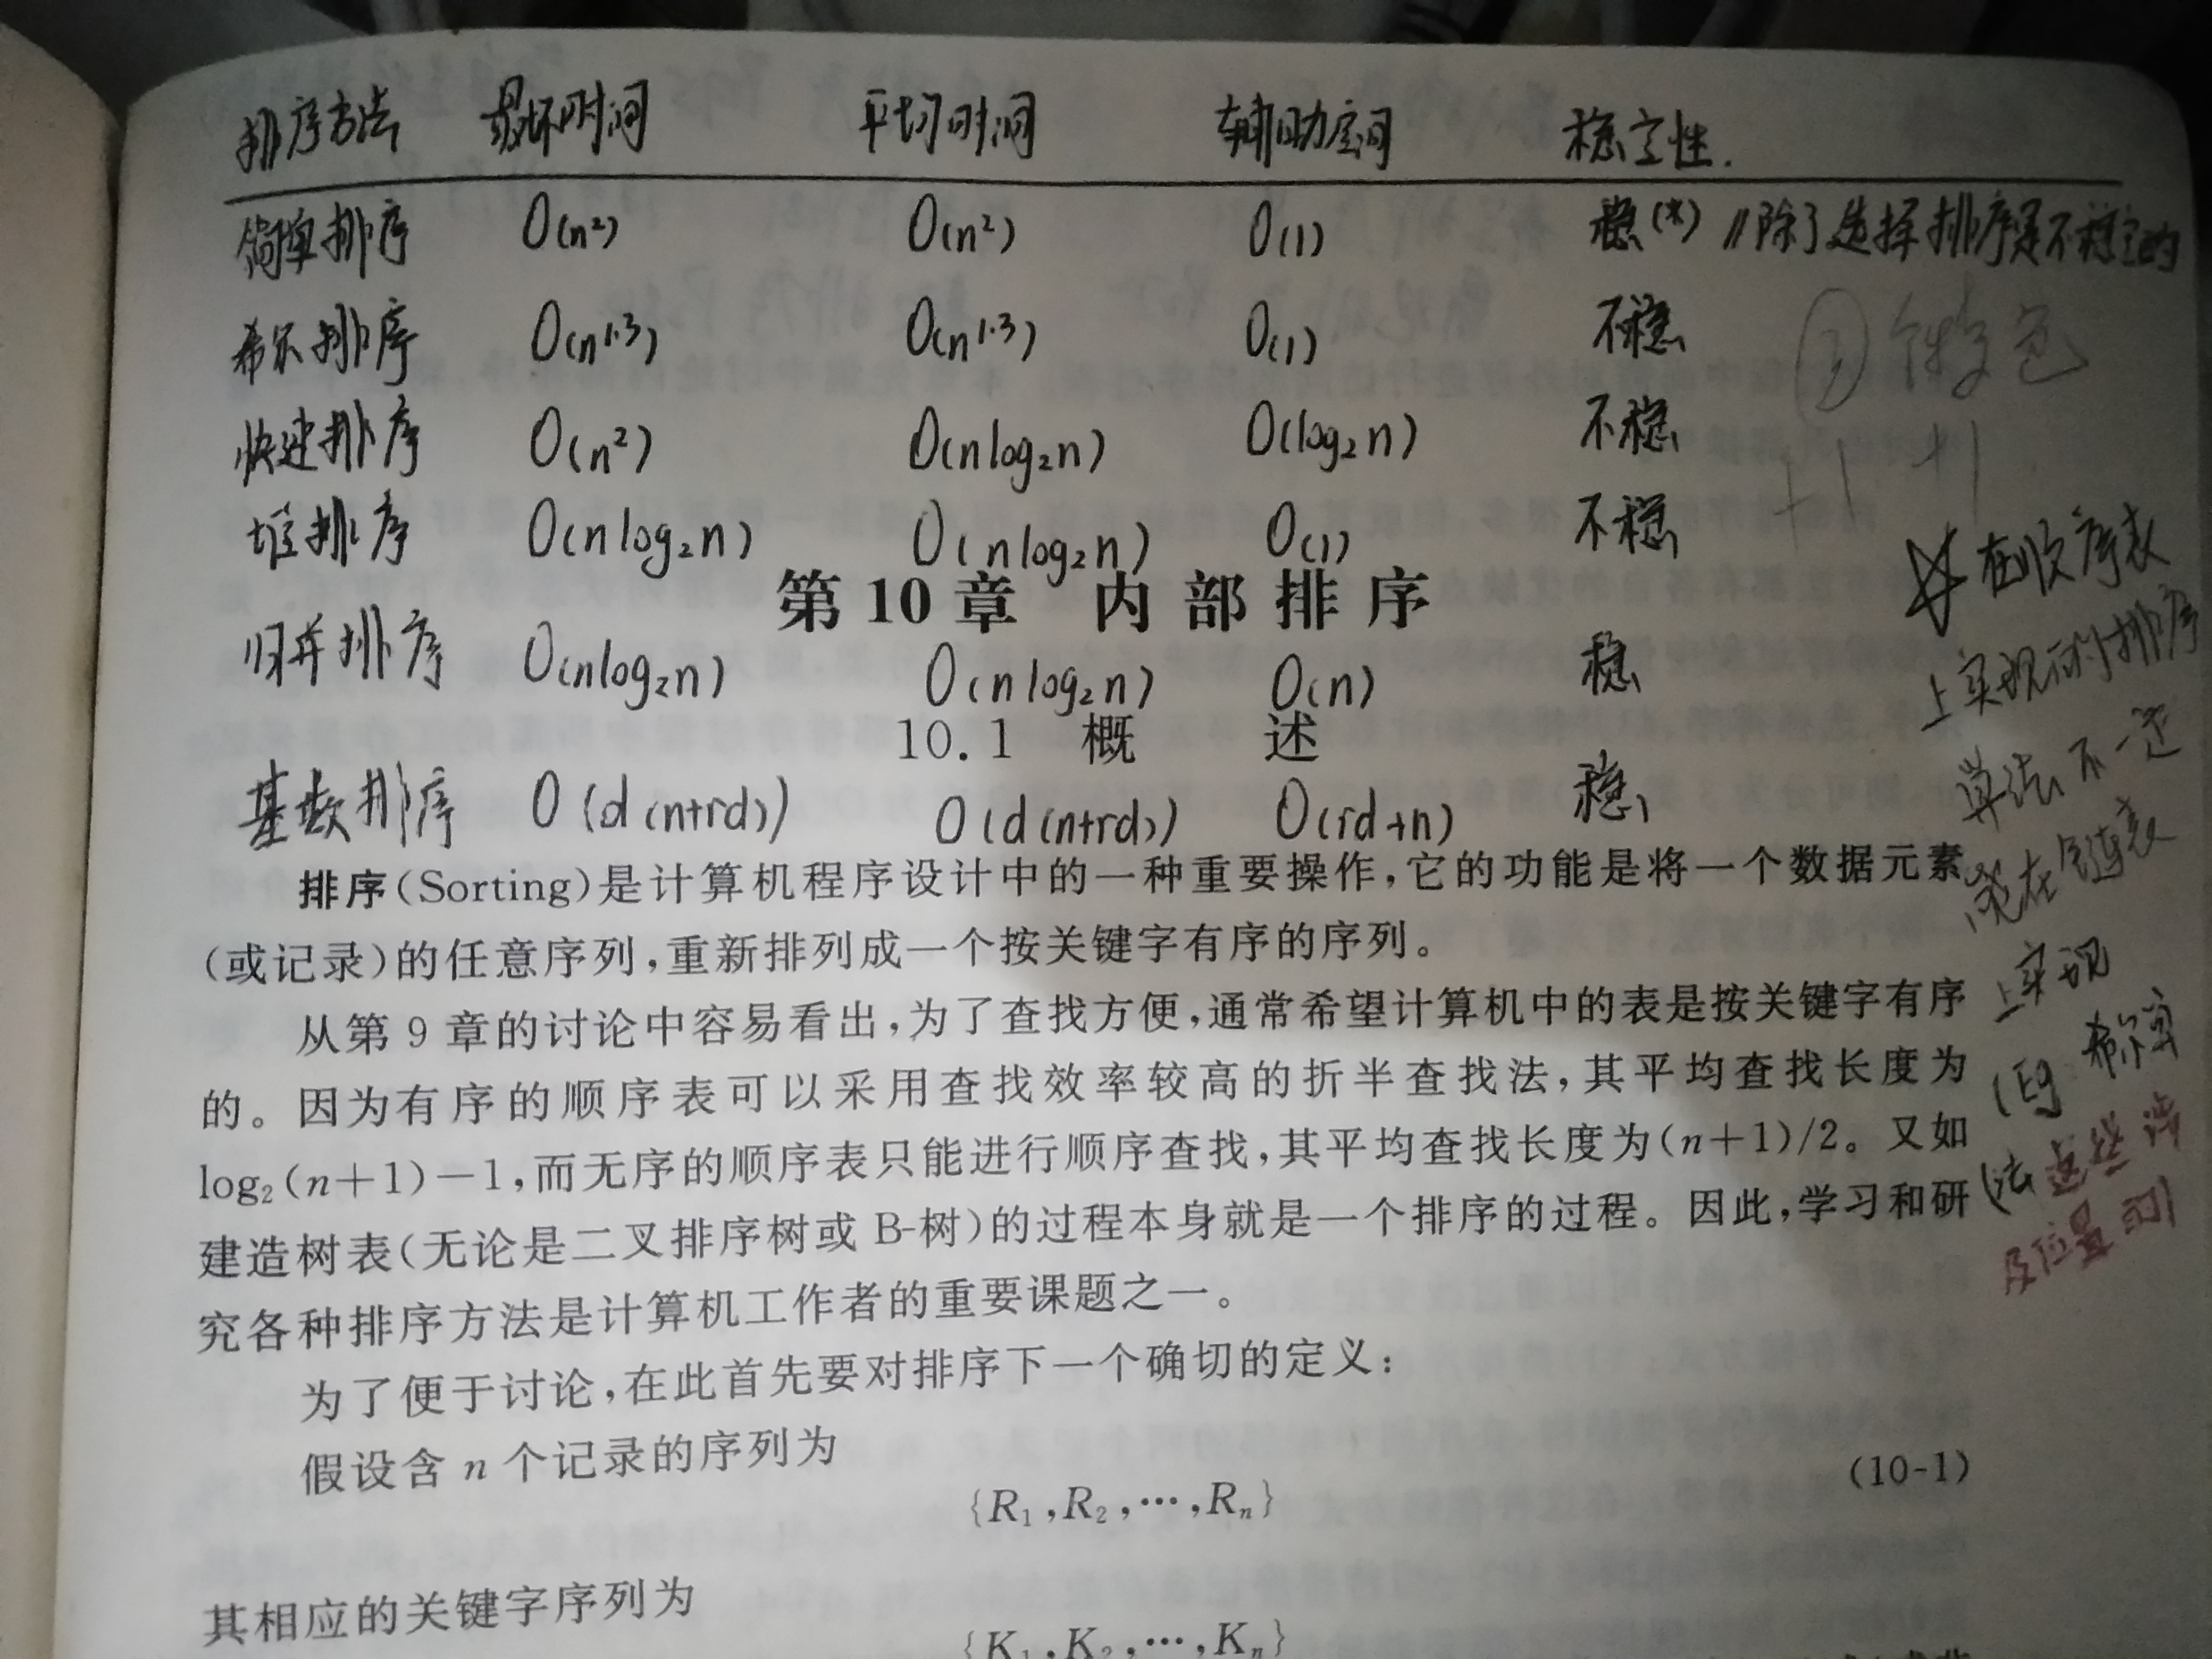 排序方法 最坏时间 平均时间 辅助空间 稳定性.
简单排序 O(n²) O(n²) O(1) 稳(*) //除了选择排序是不稳定的
希尔排序 O(n1.3) O(n1.3) O(1) 不稳
快速排序 O(n²) O(nlog₂n) O(log₂n) 不稳
堆排序 O(nlog₂n) O(nlog₂n) O(1) 不稳
第10章 内部排序
归并排序 O(nlog₂n) O(nlog₂n) O(n) 稳
10.1 概 述
基数排序 O(d(n+rd)) O(d(n+rd)) O(rd+n) 稳
排序(Sorting)是计算机程序设计中的一种重要操作,它的功能是将一个数据元素
(或记录)的任意序列,重新排列成一个按关键字有序的序列。
从第9章的讨论中容易看出,为了查找方便,通常希望计算机中的表是按关键字有序
的。因为有序的顺序表可以采用查找效率较高的折半查找法,其平均查找长度为
log₂(n+1)−1,而无序的顺序表只能进行顺序查找,其平均查找长度为(n+1)/2。又如
建造树表(无论是二叉排序树或B-树)的过程本身就是一个排序的过程。因此,学习和研
究各种排序方法是计算机工作者的重要课题之一。
为了便于讨论,在此首先要对排序下一个确切的定义:
假设含n个记录的序列为
{R₁,R₂,…,Rₙ} (10-1)
其相应的关键字序列为
{K₁,K₂,…,Kₙ}
在顺序表
上实现的排序
算法不一定
能在链表
上实现